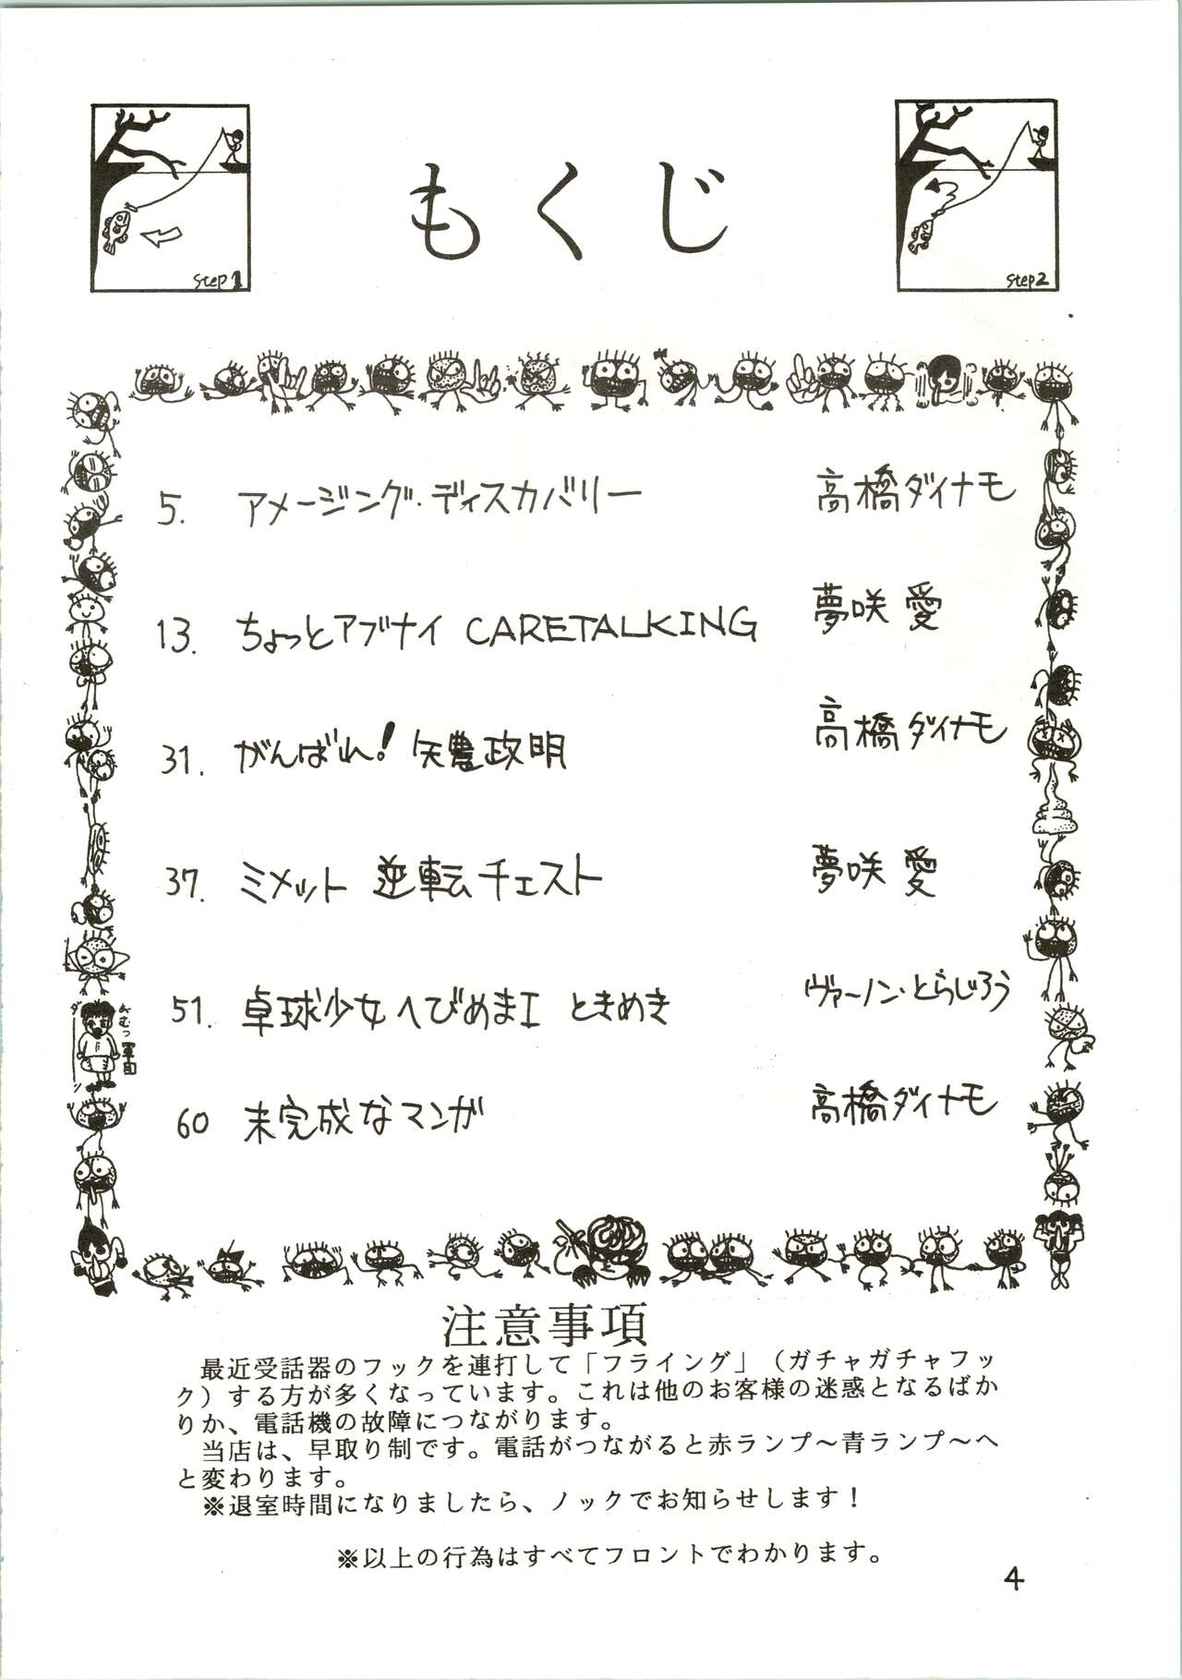 もくじ
step1
step2
5. アメージング・ディスカバリー 高橋ダイナモ
13. ちょっとアブナイ CARETALKING 夢咲 愛
31. がんばれ! 矢豊政明 高橋ダイナモ
37. ミメット 逆転チェスト 夢咲 愛
51. 卓球少女へびめまI ときめき ヴァーノン・とらじろう
60 未完成なマンガ 高橋ダイナモ
注意事項
最近受話器のフックを連打して「フライング」（ガチャガチャフッ
ク）する方が多くなっています。これは他のお客様の迷惑となるばか
りか、電話機の故障につながります。
当店は、早取り制です。電話がつながると赤ランプ〜青ランプ〜へ
と変わります。
※退室時間になりましたら、ノックでお知らせします！
※以上の行為はすべてフロントでわかります。
4